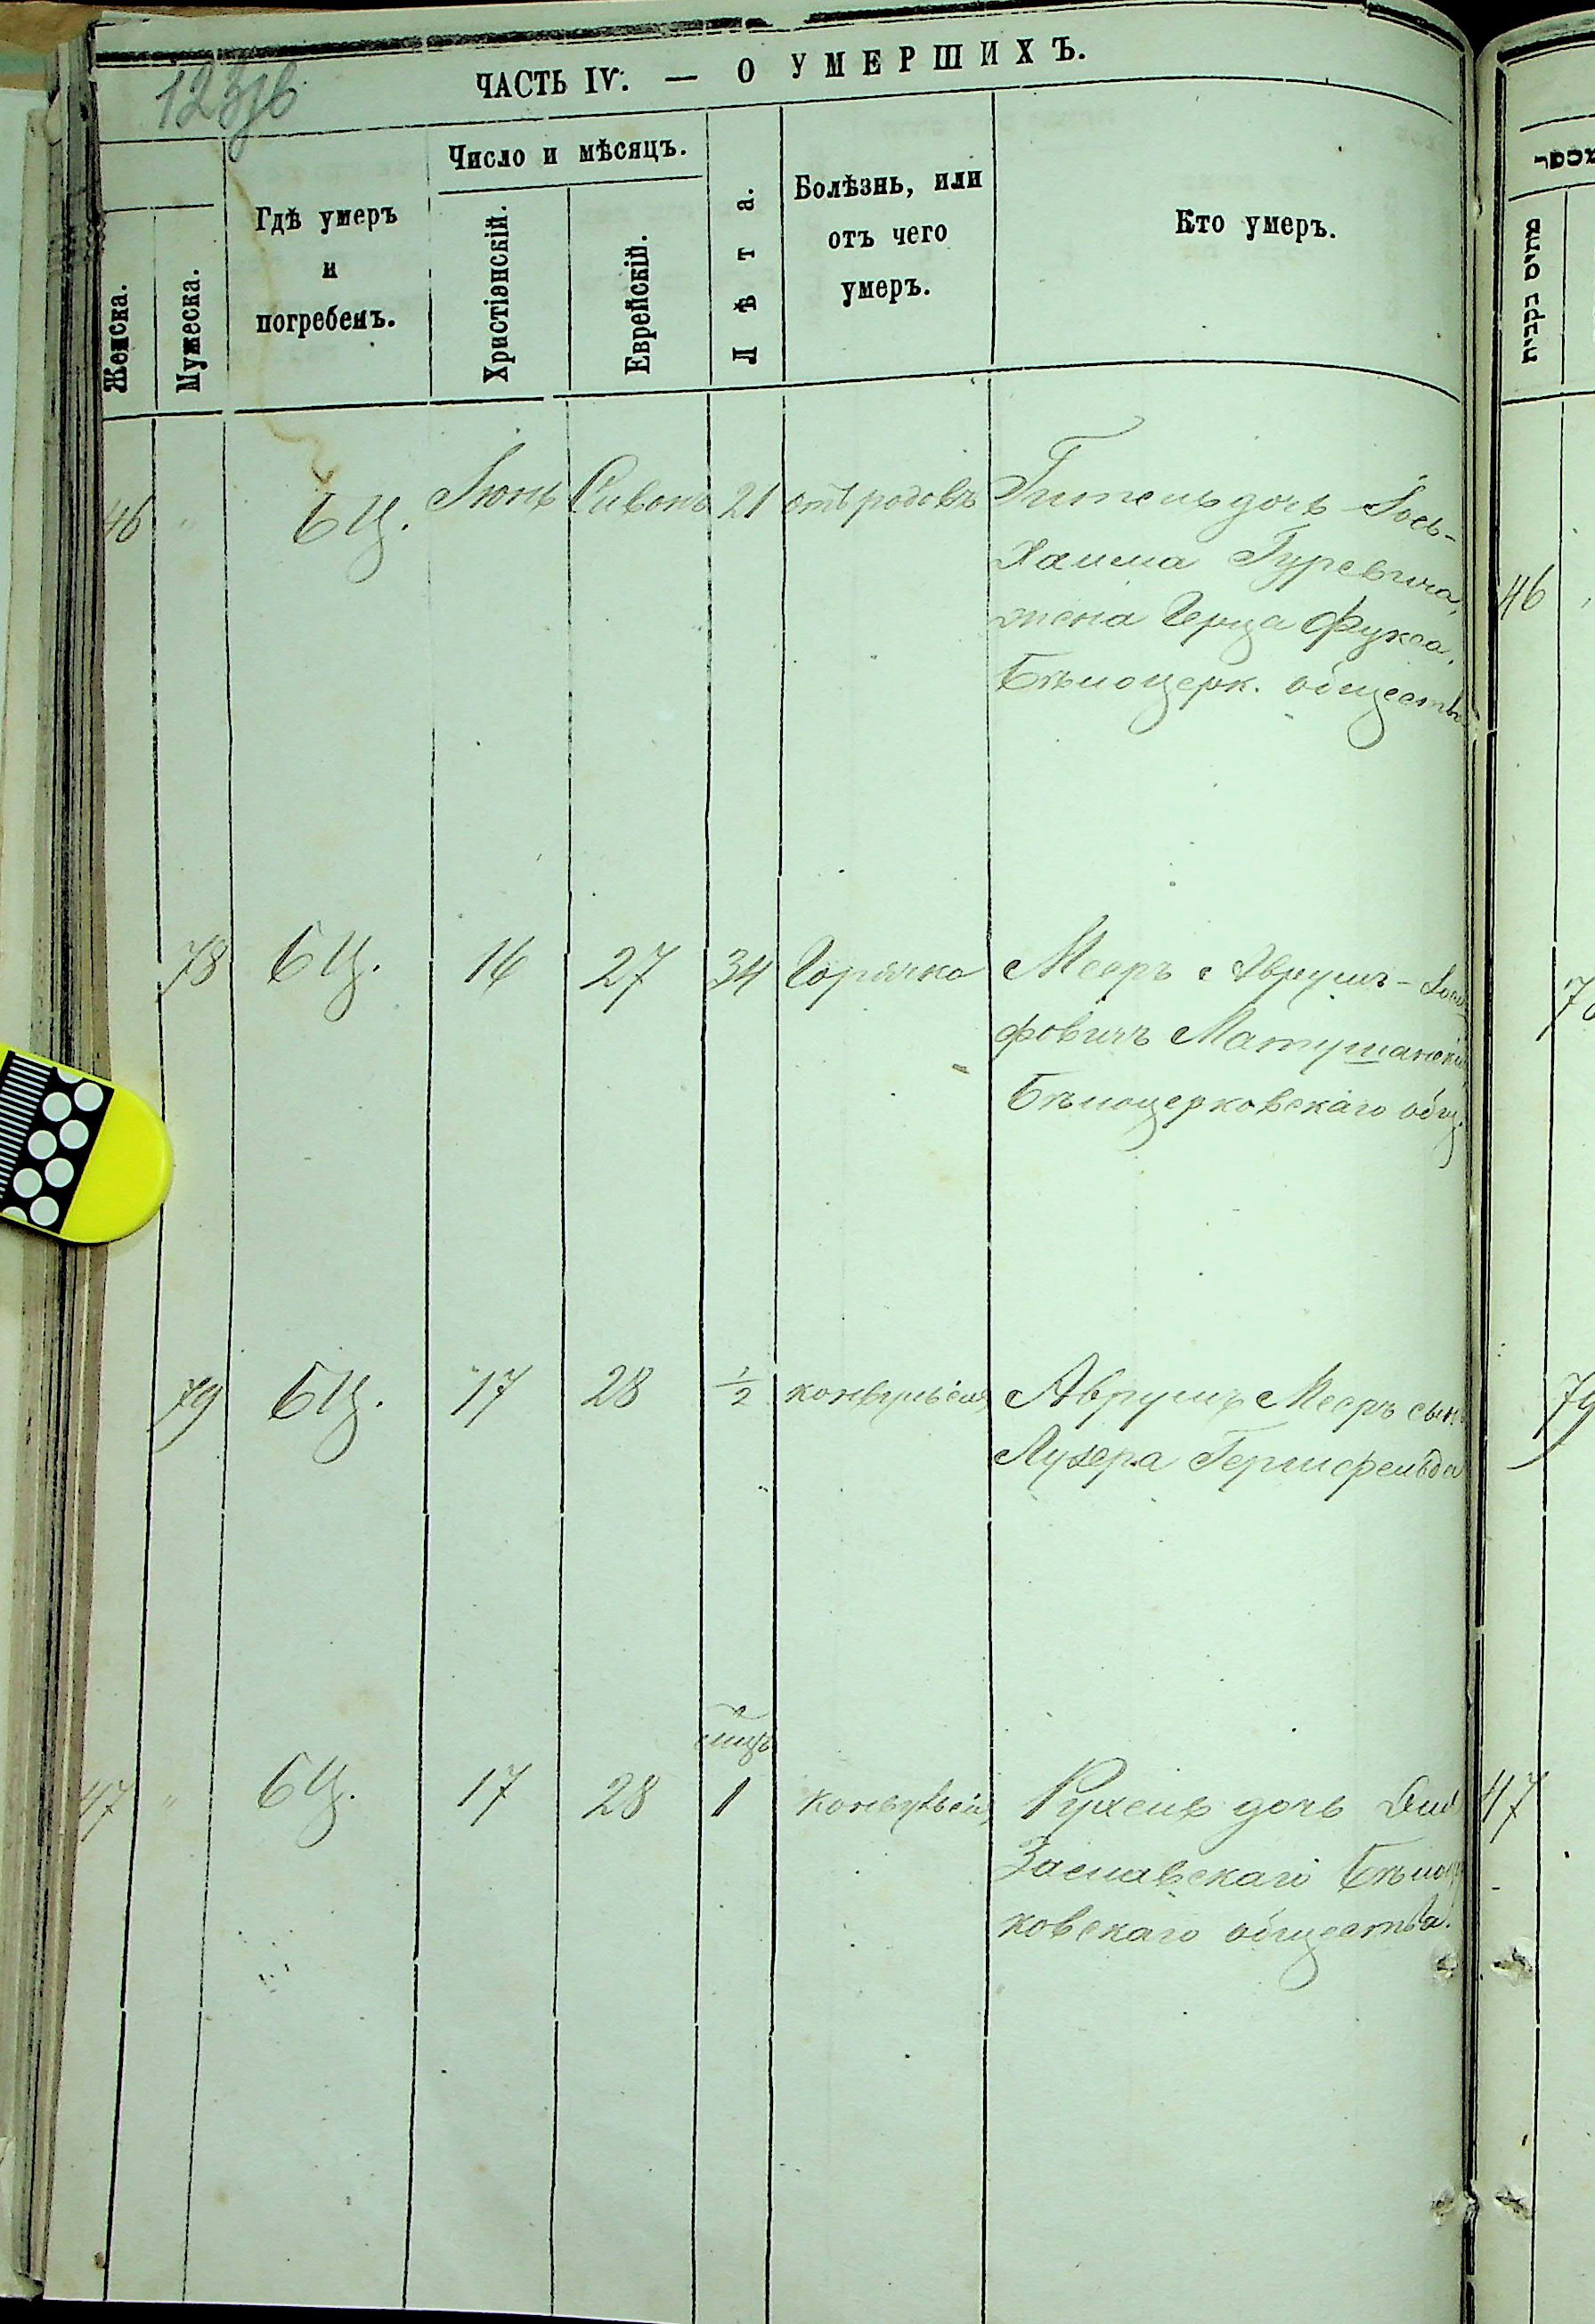 123зв
ЧАСТЬ IV. — О УМЕРШИХЪ.
Женска.
Мужеска.
Гдѣ умеръ
и
погребенъ.
Число и мѣсяцъ.
Христіэнскій.
Еврейскій.
Лѣта.
Болѣзнь, или
отъ чего
умеръ.
Кто умеръ.
46 " БЦ. Іюнь Сивонъ 21 отъ родовъ Гитель дочь Іось-
Хаима Гуревича,
жена Герца Фукса,
Бѣлоцерк. общества
78 БЦ. 16 27 34 Горячка Мееръ Аврумъ-Іоси
фовичъ Матушанскій
Бѣлоцерковскаго общ.
79 БЦ. 17 28 1/2 конвульсія Аврумъ Мееръ сынъ
Лузера Гершфельда
мцъ
47 " БЦ. 17 28 1 конвульсія Рухель дочь
Заславскаго Бѣлоц
ковскаго общества.
מכסר
מתים נקבית
46
78
79
47